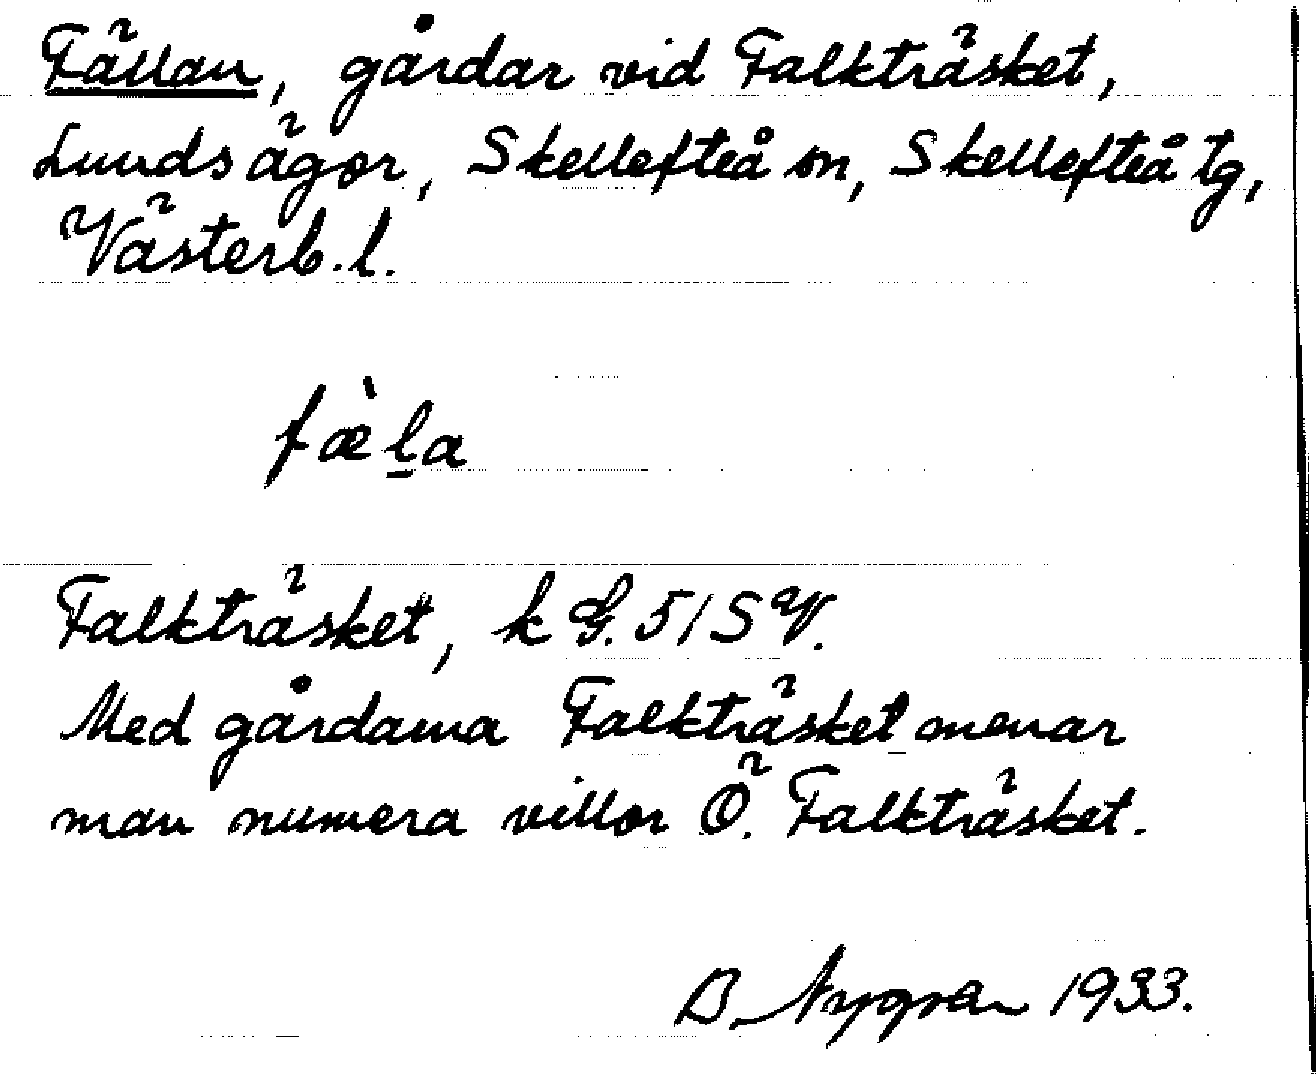 Fällan, gårdar vid Falkträsket,
Lunds ägor, Skellefteå sn, Skellefteå tg,
Västerb. l.
fæ̀l̠a
Falkträsket, k G. 51 SV.
Med gårdarna Falkträsket menar
man numera villor Ö. Falkträsket.
B. Nygren 1933.